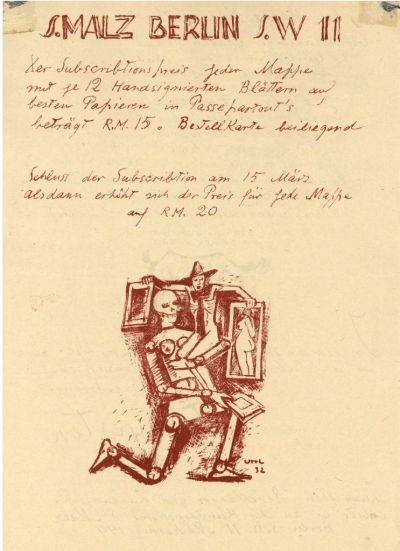 S. MALZ BERLIN S.W 11
Der Subscribtionspreis jeder Mappe
mit je 12 Handsignierten Blättern auf
besten Papieren in Passepartout's
beträgt R.M. 15. Bestellkarte beiliegend
Schluss der Subscribtion am 15 März
alsdann erhöht sich der Preis für jede Mappe
auf R.M. 20
32